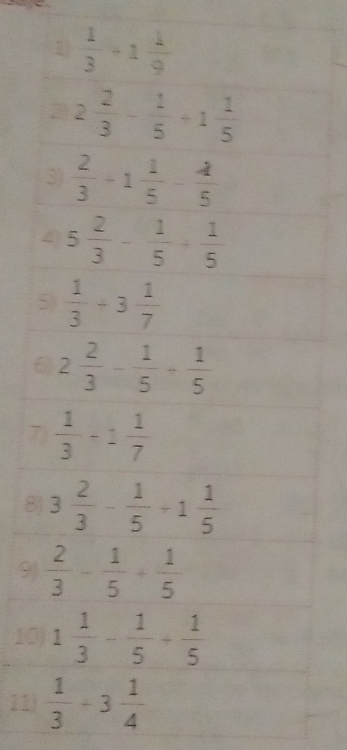 1) 1/3 + 1 1/9
2) 2 2/3 - 1/5 + 1 1/5
3) 2/3 + 1 1/5 - 4/5
4) 5 2/3 - 1/5 + 1/5
5) 1/3 + 3 1/7
6) 2 2/3 - 1/5 + 1/5
7) 1/3 + 1 1/7
8) 3 2/3 - 1/5 + 1 1/5
9) 2/3 - 1/5 + 1/5
10) 1 1/3 - 1/5 + 1/5
11) 1/3 + 3 1/4